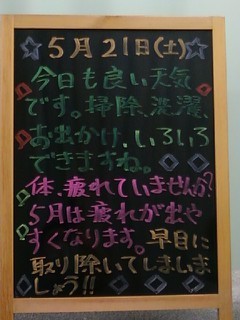 5月21日(土)
今日も良い天気
です。掃除、洗濯、
お出かけ、いろいろ
できますね。
体、疲れていませんか?
5月は疲れが出や
すくなります。早目に
取り除いてしまいま
しょう!!